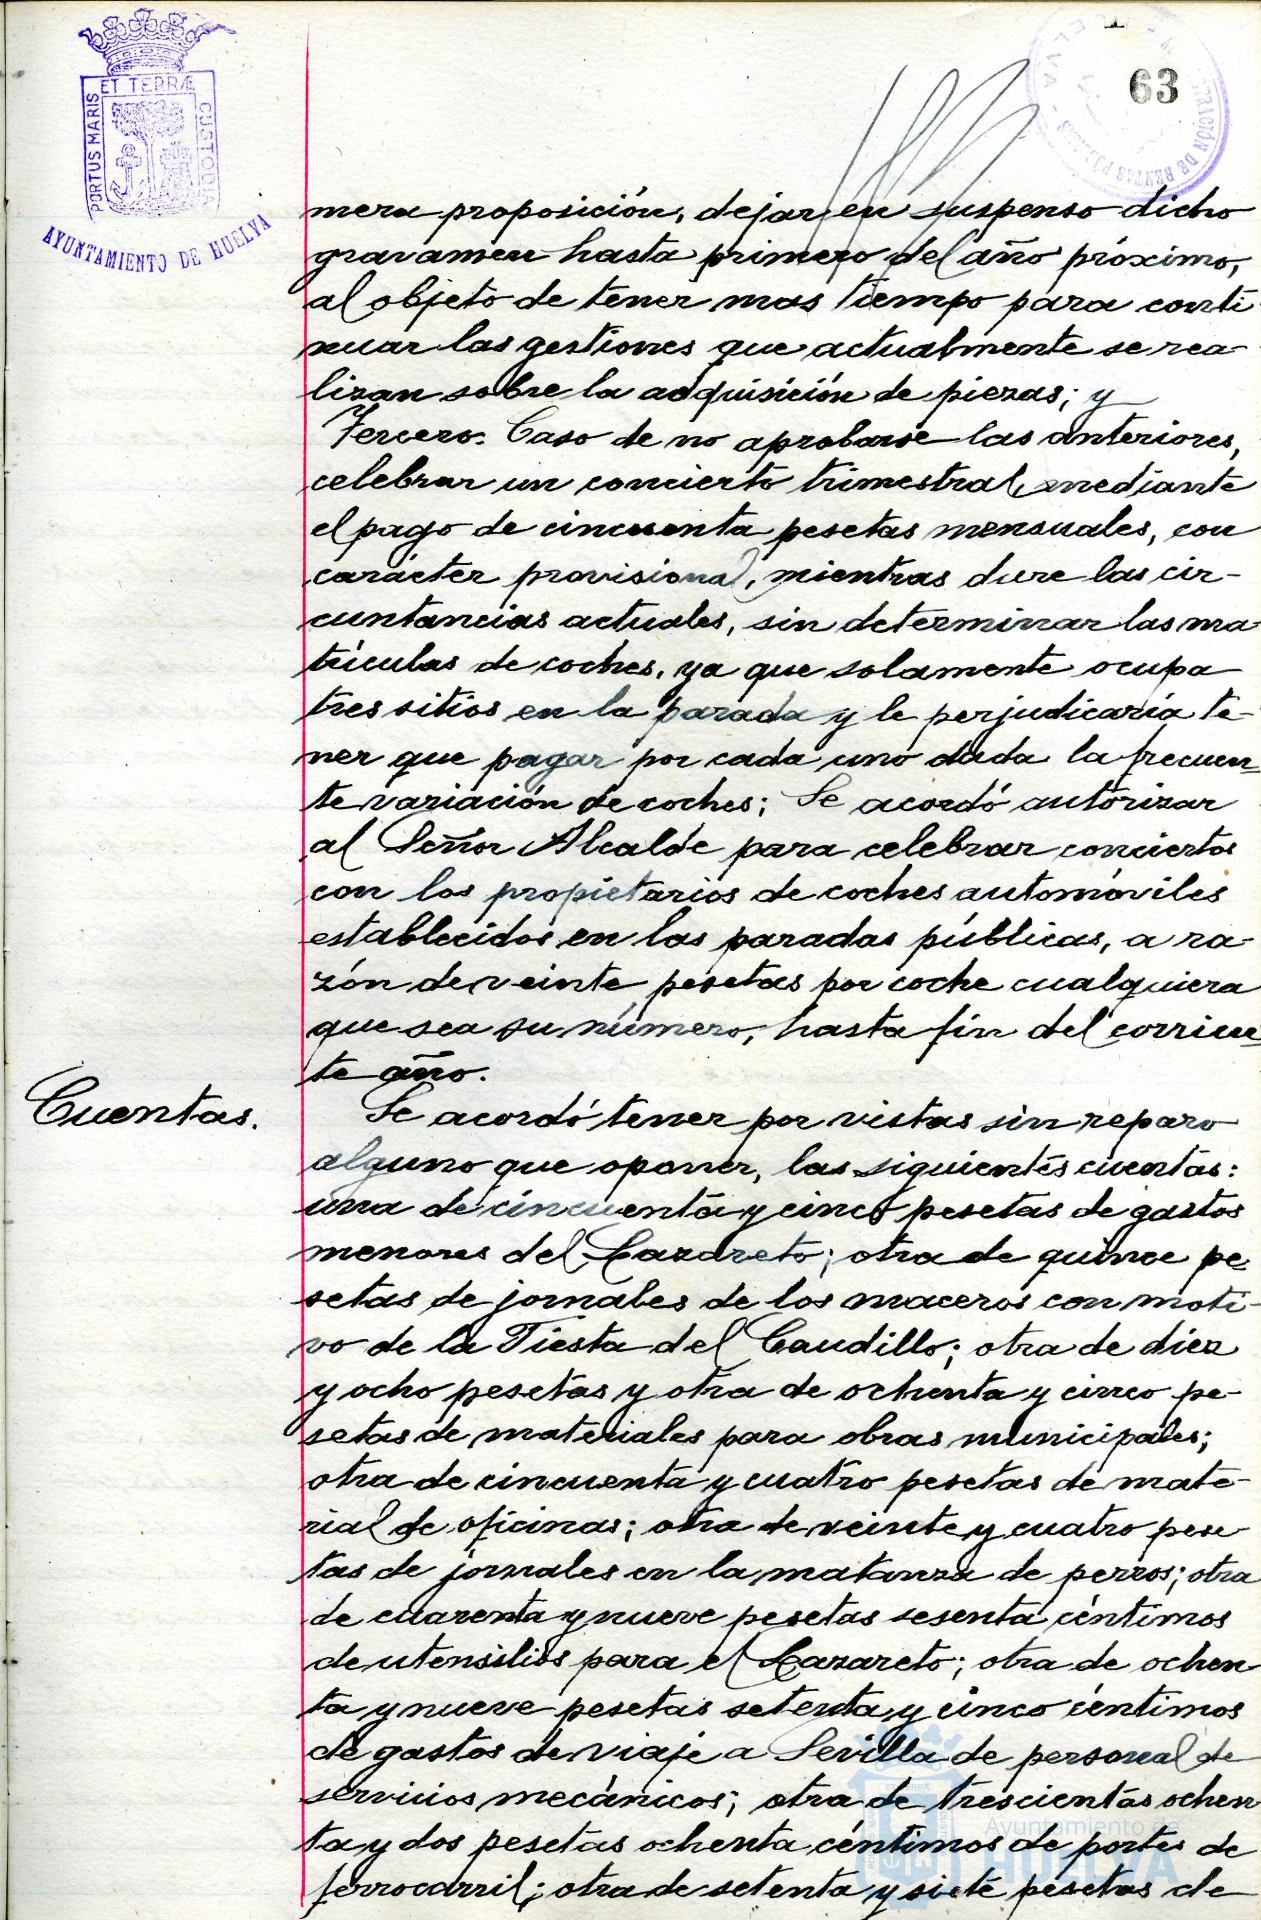 ET TERRÆ
PORTUS MARIS
CUSTODIA
AYUNTAMIENTO DE HUELVA
63
mera proposición, dejar en suspenso dicho
gravamen hasta primero del año próximo,
al objeto de tener mas tiempo para conti
nuar las gestiones que actualmente se rea-
lizan sobre la adquisición de piezas; y
Tercero. Caso de no aprobarse las anteriores,
celebrar un concierto trimestral, mediante
el pago de cincuenta pesetas mensuales, con
carácter provisional, mientras dure las cir-
cuntancias actuales, sin determinar las ma
trículas de coches, ya que solamente ocupa
tres sitios en la parada y le perjudicaría te-
ner que pagar por cada uno dada la frecuen-
te variación de coches; Se acordó autorizar
al Señor Alcalde para celebrar conciertos
con los propietarios de coches automóviles
establecidos en las paradas públicas, a ra-
zón de veinte pesetas por coche cualquiera
que sea su número, hasta fin del corrien-
te año.
Cuentas.
Se acordó tener por vistas sin reparo
alguno que oponer, las siguientes cuentas:
una de cincuenta y cinco pesetas de gastos
menores del Lazareto; otra de quince pe-
setas de jornales de los maceros con moti-
vo de la Fiesta del Caudillo; otra de diez
y ocho pesetas y otra de ochenta y cinco pe-
setas de materiales para obras municipales;
otra de cincuenta y cuatro pesetas de mate-
rial de oficinas; otra de veinte y cuatro pese-
tas de jornales en la matanza de perros; otra
de cuarenta y nueve pesetas sesenta céntimos
de utensilios para el Lazareto; otra de ochen-
ta y nueve pesetas setenta y cinco céntimos
de gastos de viaje a Sevilla de personal de
servicios mecánicos; otra de trescientas ochen
ta y dos pesetas ochenta céntimos de portes de
ferrocarril; otra de setenta y siete pesetas de
Ayuntamiento de
HUELVA